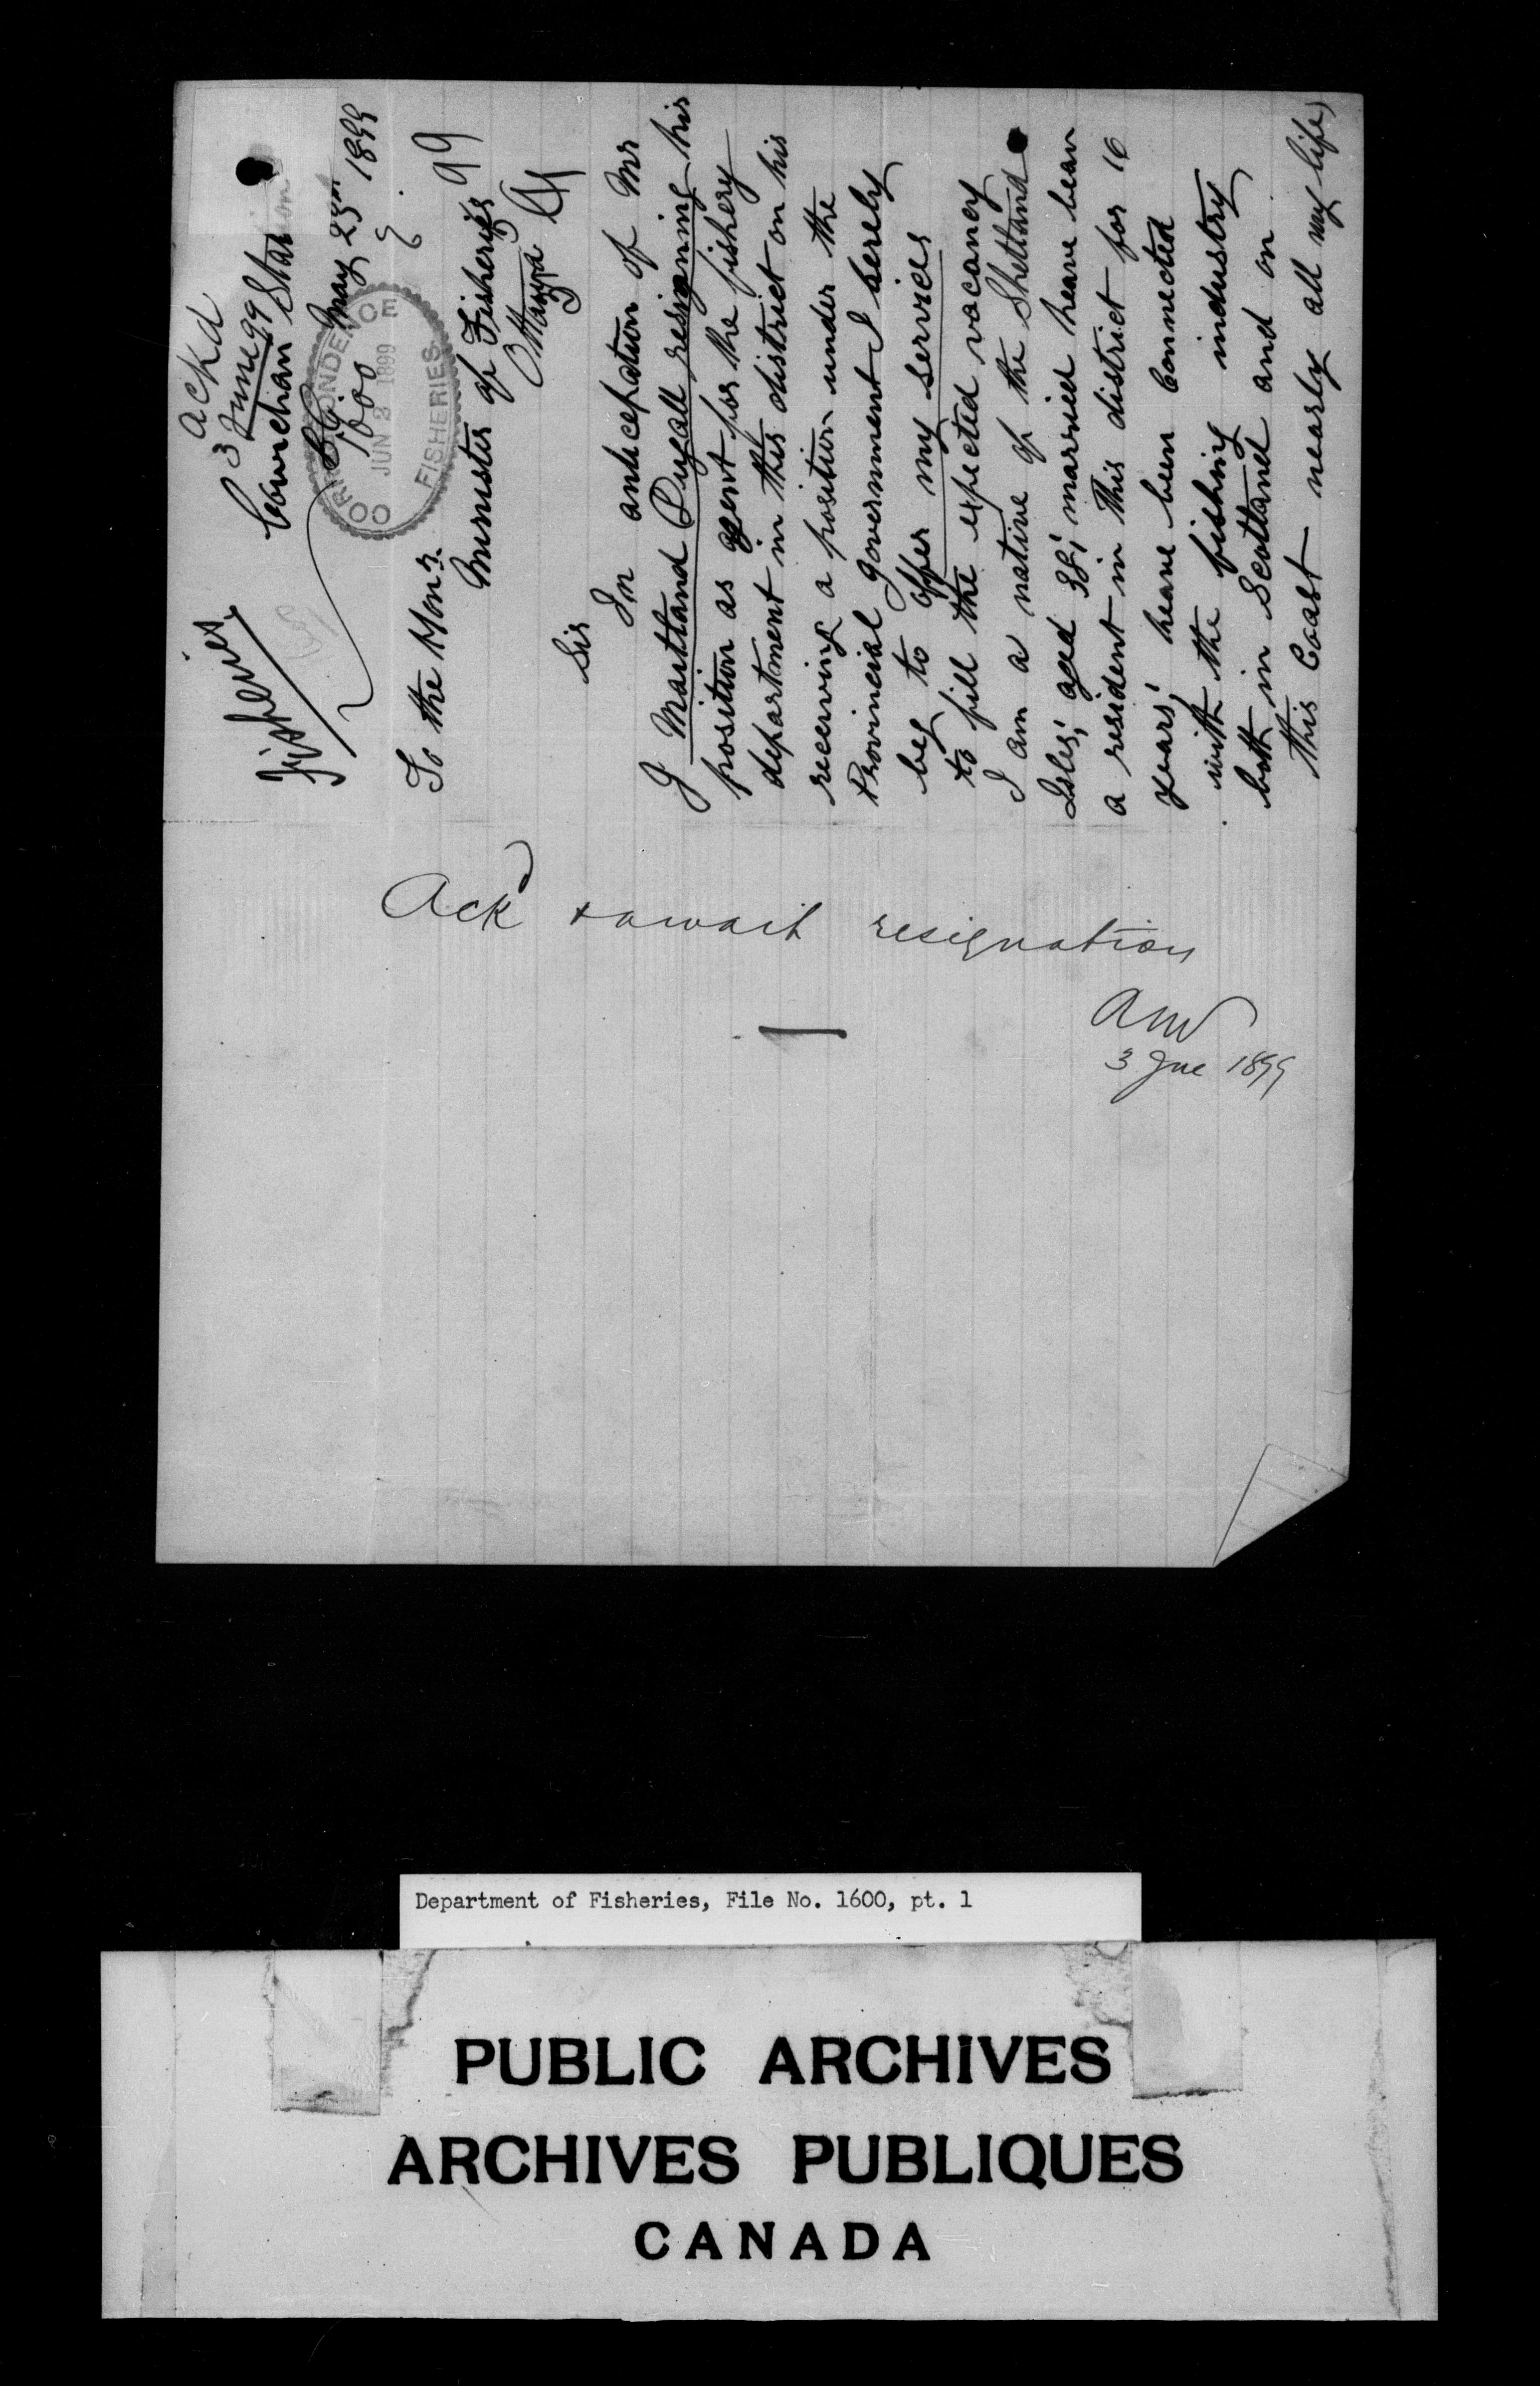 Ackd
3 June 99
Fisheries
Cowichan Station
B.C. May 23rd 1899
CORRESPONDENCE
JUN 2 1899
FISHERIES
1600
99
To the Honr.
Minister of Fisheries
Ottawa
Sir
In anticipation of Mr
J Maitland Dugall resigning his
position as agent for the fishery
department in this district on his
receiving a position under the
Provincial Government I hereby
beg to offer my services
to fill the expected vacancy
I am a native of the Shetland
Isles, aged 38, married have bean
a resident in this district for 16
years, have been connected
with the fishing industry
both in Scotland and on
this Coast nearly all my life
Ackd + await resignation
3 Jne 1899
Department of Fisheries, File No. 1600, pt. 1
PUBLIC ARCHIVES
ARCHIVES PUBLIQUES
CANADA